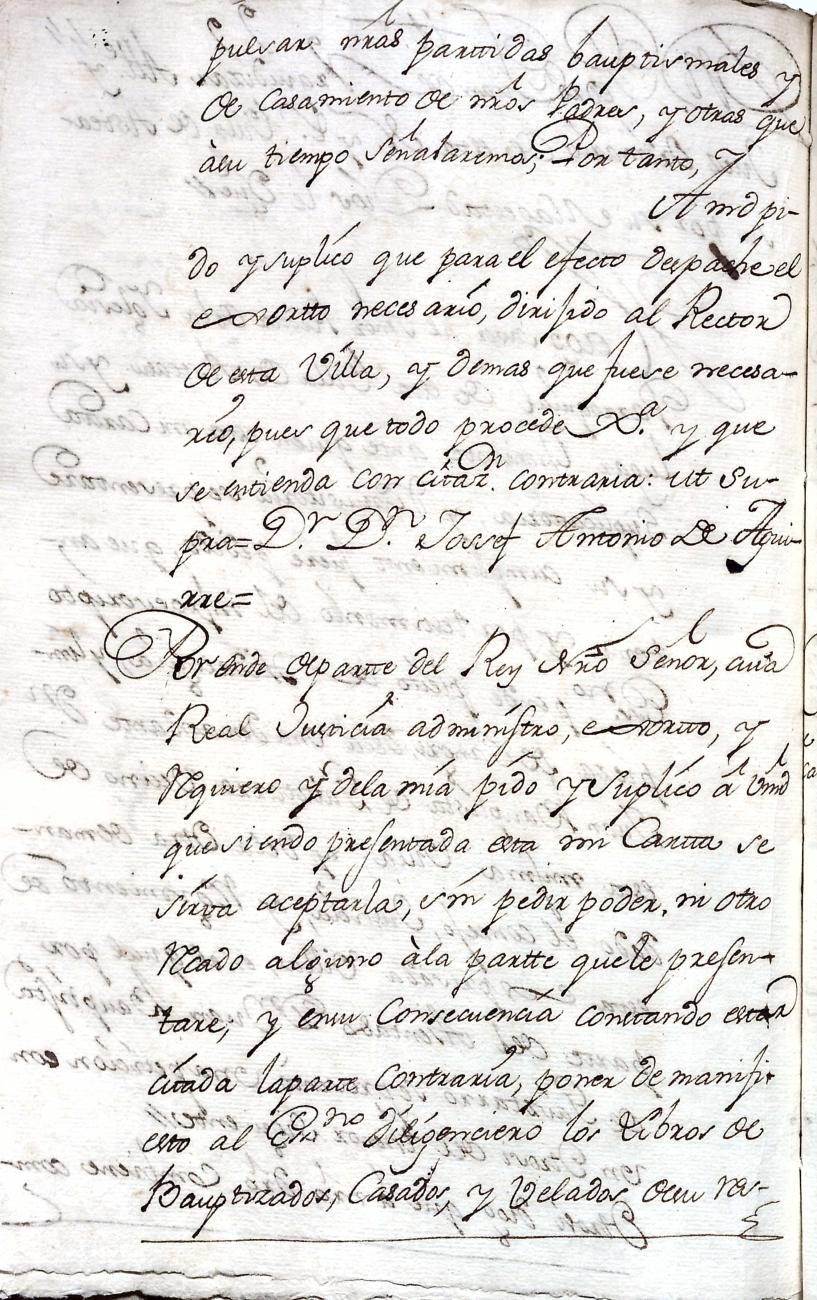 pulsar nrãs parttidas bauptismales y
de casamiento de nrõs Padres, y otras que
àsu tiempo señalaremos; Por tanto,
A md pi-
do y suplico que para el efecto despache el
exortto necesario, dirijido al Rector
de esta Villa, y demas que fuese necesa-
rio, pues que todo procede Xª. y que
se entienda con citazn. contraria: ut su-
pra= Dr. Dn. Josef Antonio de Aguir-
rre=
Por ende departte del Rey Nrõ Señor, cuia
Real Justicia administro, exortto, y
Rquiero y dela mia pido y suplico à Vmd
que siendo presentada esta mi Cartta se
sirva aceptarla, sin pedir poder, ni otro
Rcado alguno àla partte quele presen-
tare; y ensu Consecuencia constando estar
citada laparte Contraria, poner de manifi-
esto al Esno diligenciero los Libros de
Bauptizados, Casados, y Velados desu res-